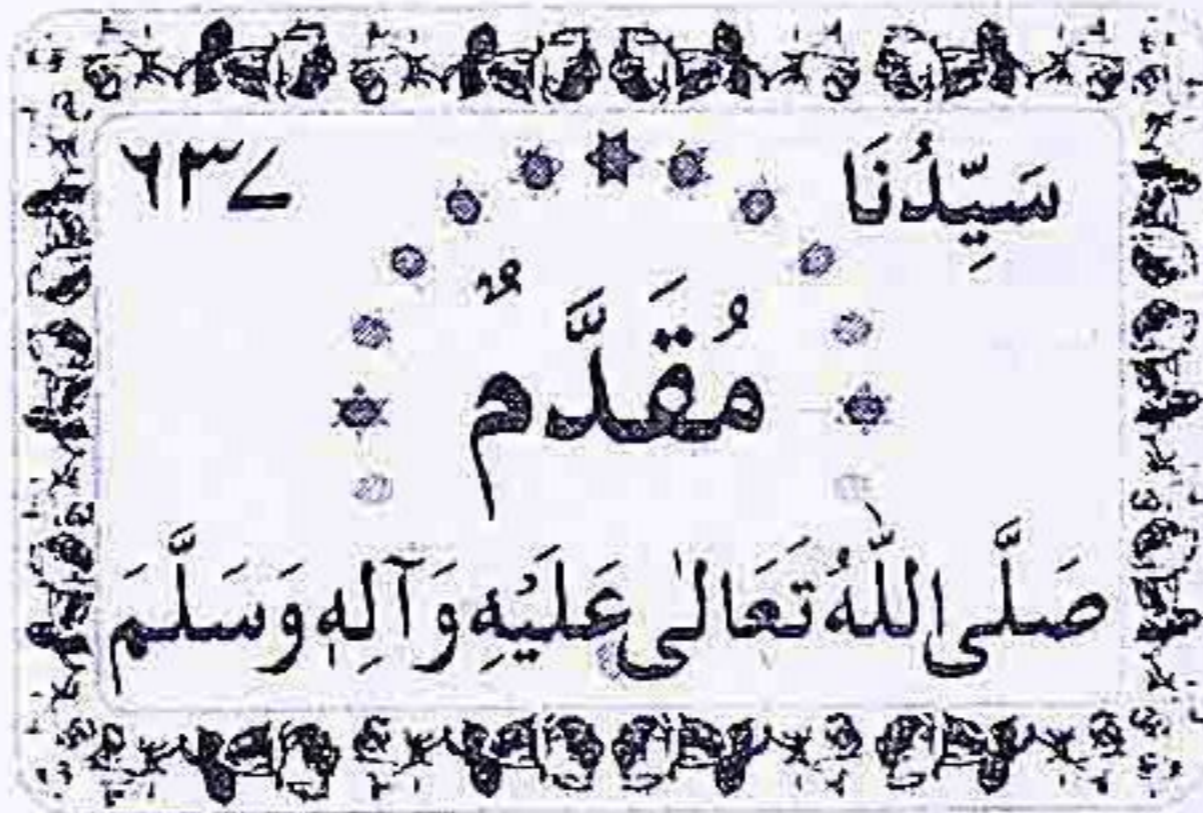 سَيِّدُنَا ۶۳۷
مُقَدَّمٌ
صَلَّى اللّٰهُ تَعَالٰى عَلَيْهِ وَآلِهٖ وَسَلَّمَ